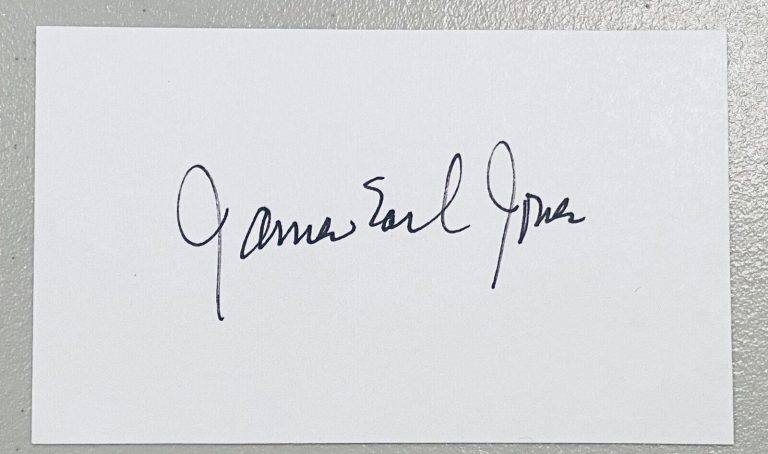 James Earl Jones